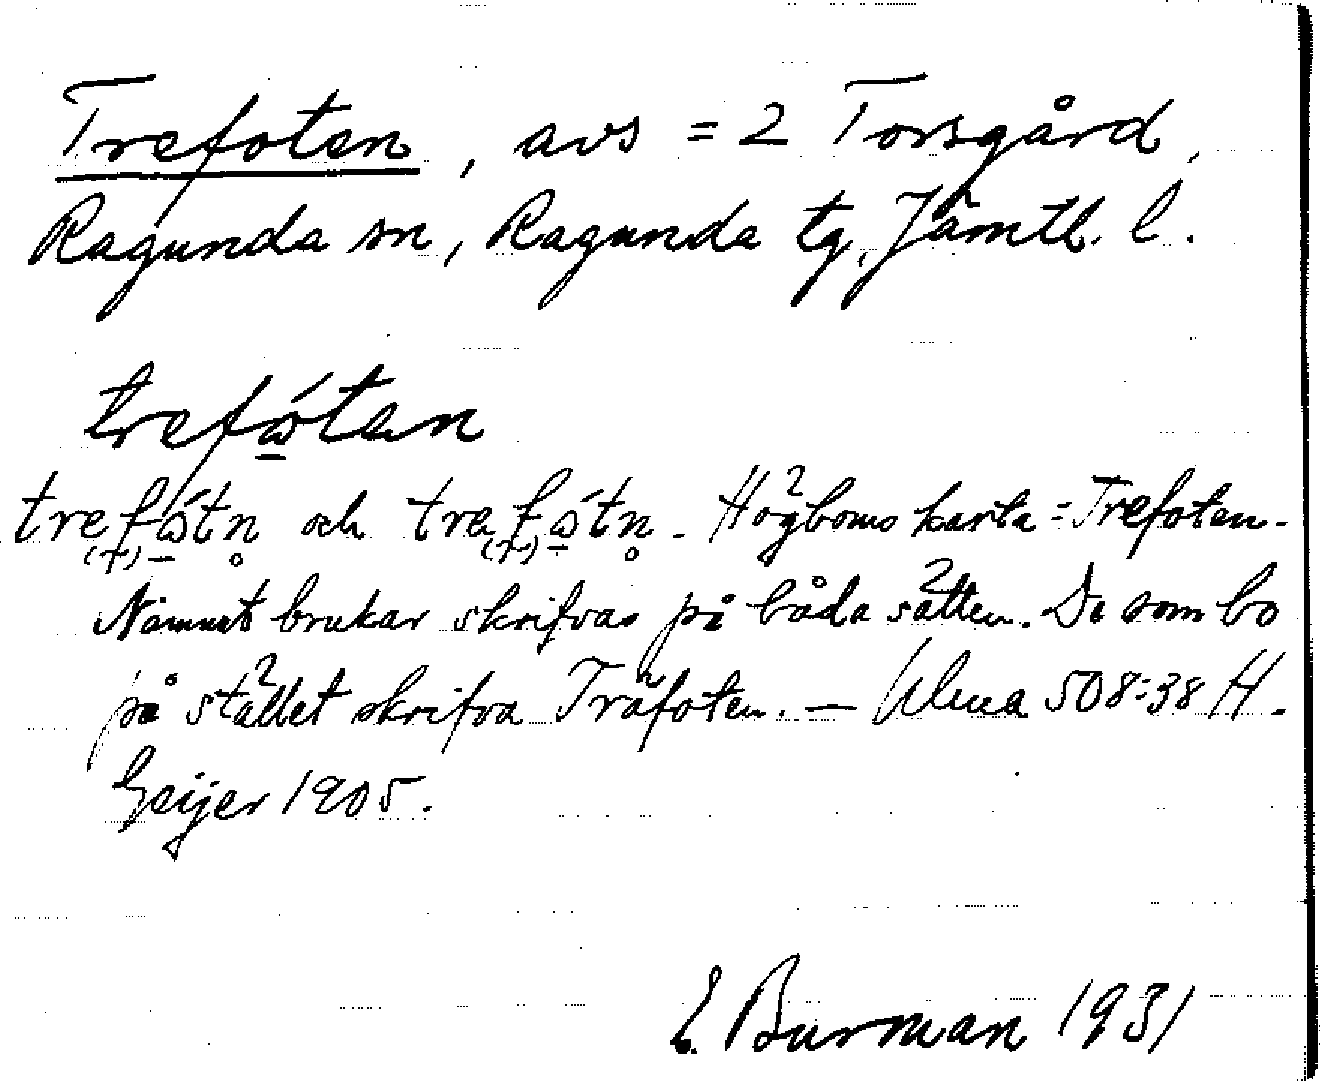 Trefoten, avs = 2 Torsgård,
Ragunda sn, Ragunda tg, Jämtl. l.
trefώten
trefώtn̥ och trefώtn̥. Högboms karta = Trefoten.
Namnet brukar skrifvas på båda sätten. De som bo
på stället skrifva Träfoten. — Ulma 508:38 H.
Geijer 1905.
E. Burman 1931